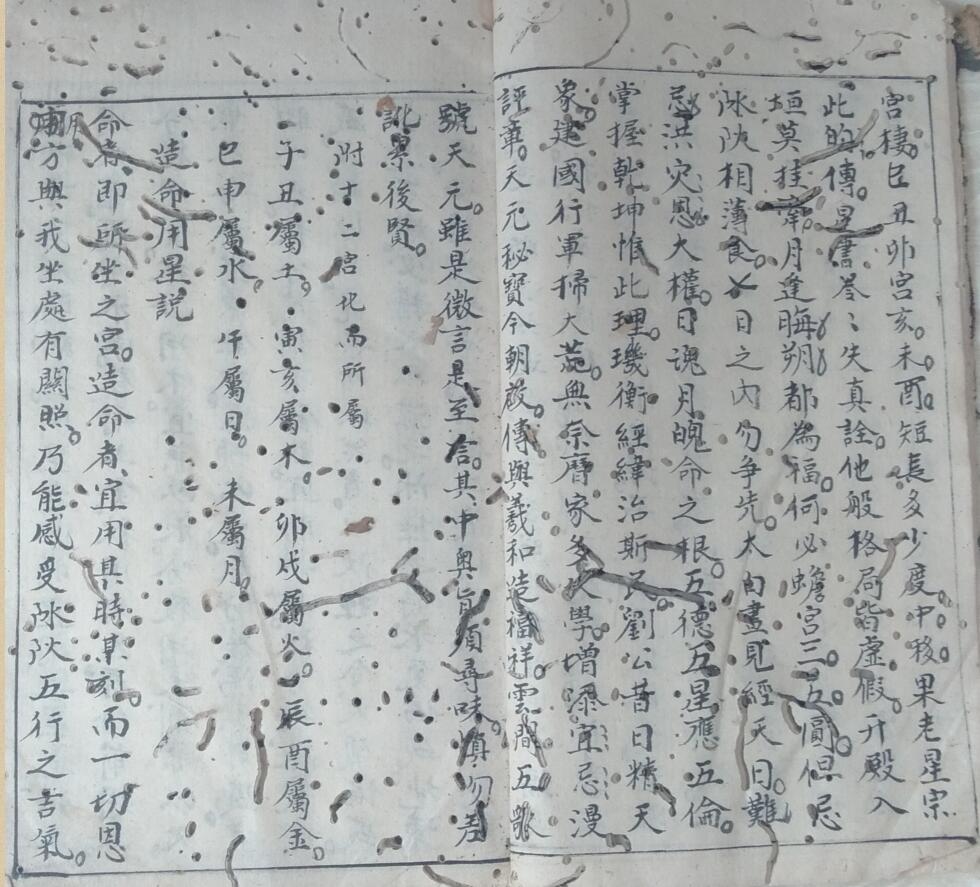 宮棲。巳丑卯宮亥。未。酉。短長多少度。中移。果老星宗
此的傳。星書峇〻失真詮。他般格局皆虛假。升殿入
垣莫挂牽。月逢晦朔都為福。何必蟾宮三五圓。俱忌
陎阦相薄食。日之內勿爭先。太白晝見經天日。難
忌洪灾。恩大權。日魂月魄命之根。五德五星應五倫。
掌握乾坤惟此理。璣衡經緯治斯民。劉公昔日精天
象。建國行軍掃大㷼。無奈曆家多失學。增添宜忌漫
評章。天元秘寶今朝啟。傳與羲和造福祥。雲間五歌
號天元。雖是微言是至言。其中奧旨須尋味。慎勿差
訛累後賢。
附十二宮化而所屬
子丑屬土。寅亥屬木。卯戌屬火。辰酉屬金。
巳申屬水。午屬日。未屬月。
造命用星説
命者即所坐之宮。造命者宜用某時某刻。而一切恩
用方與我坐處有關照。乃能感受陎阦五行之吉氣。